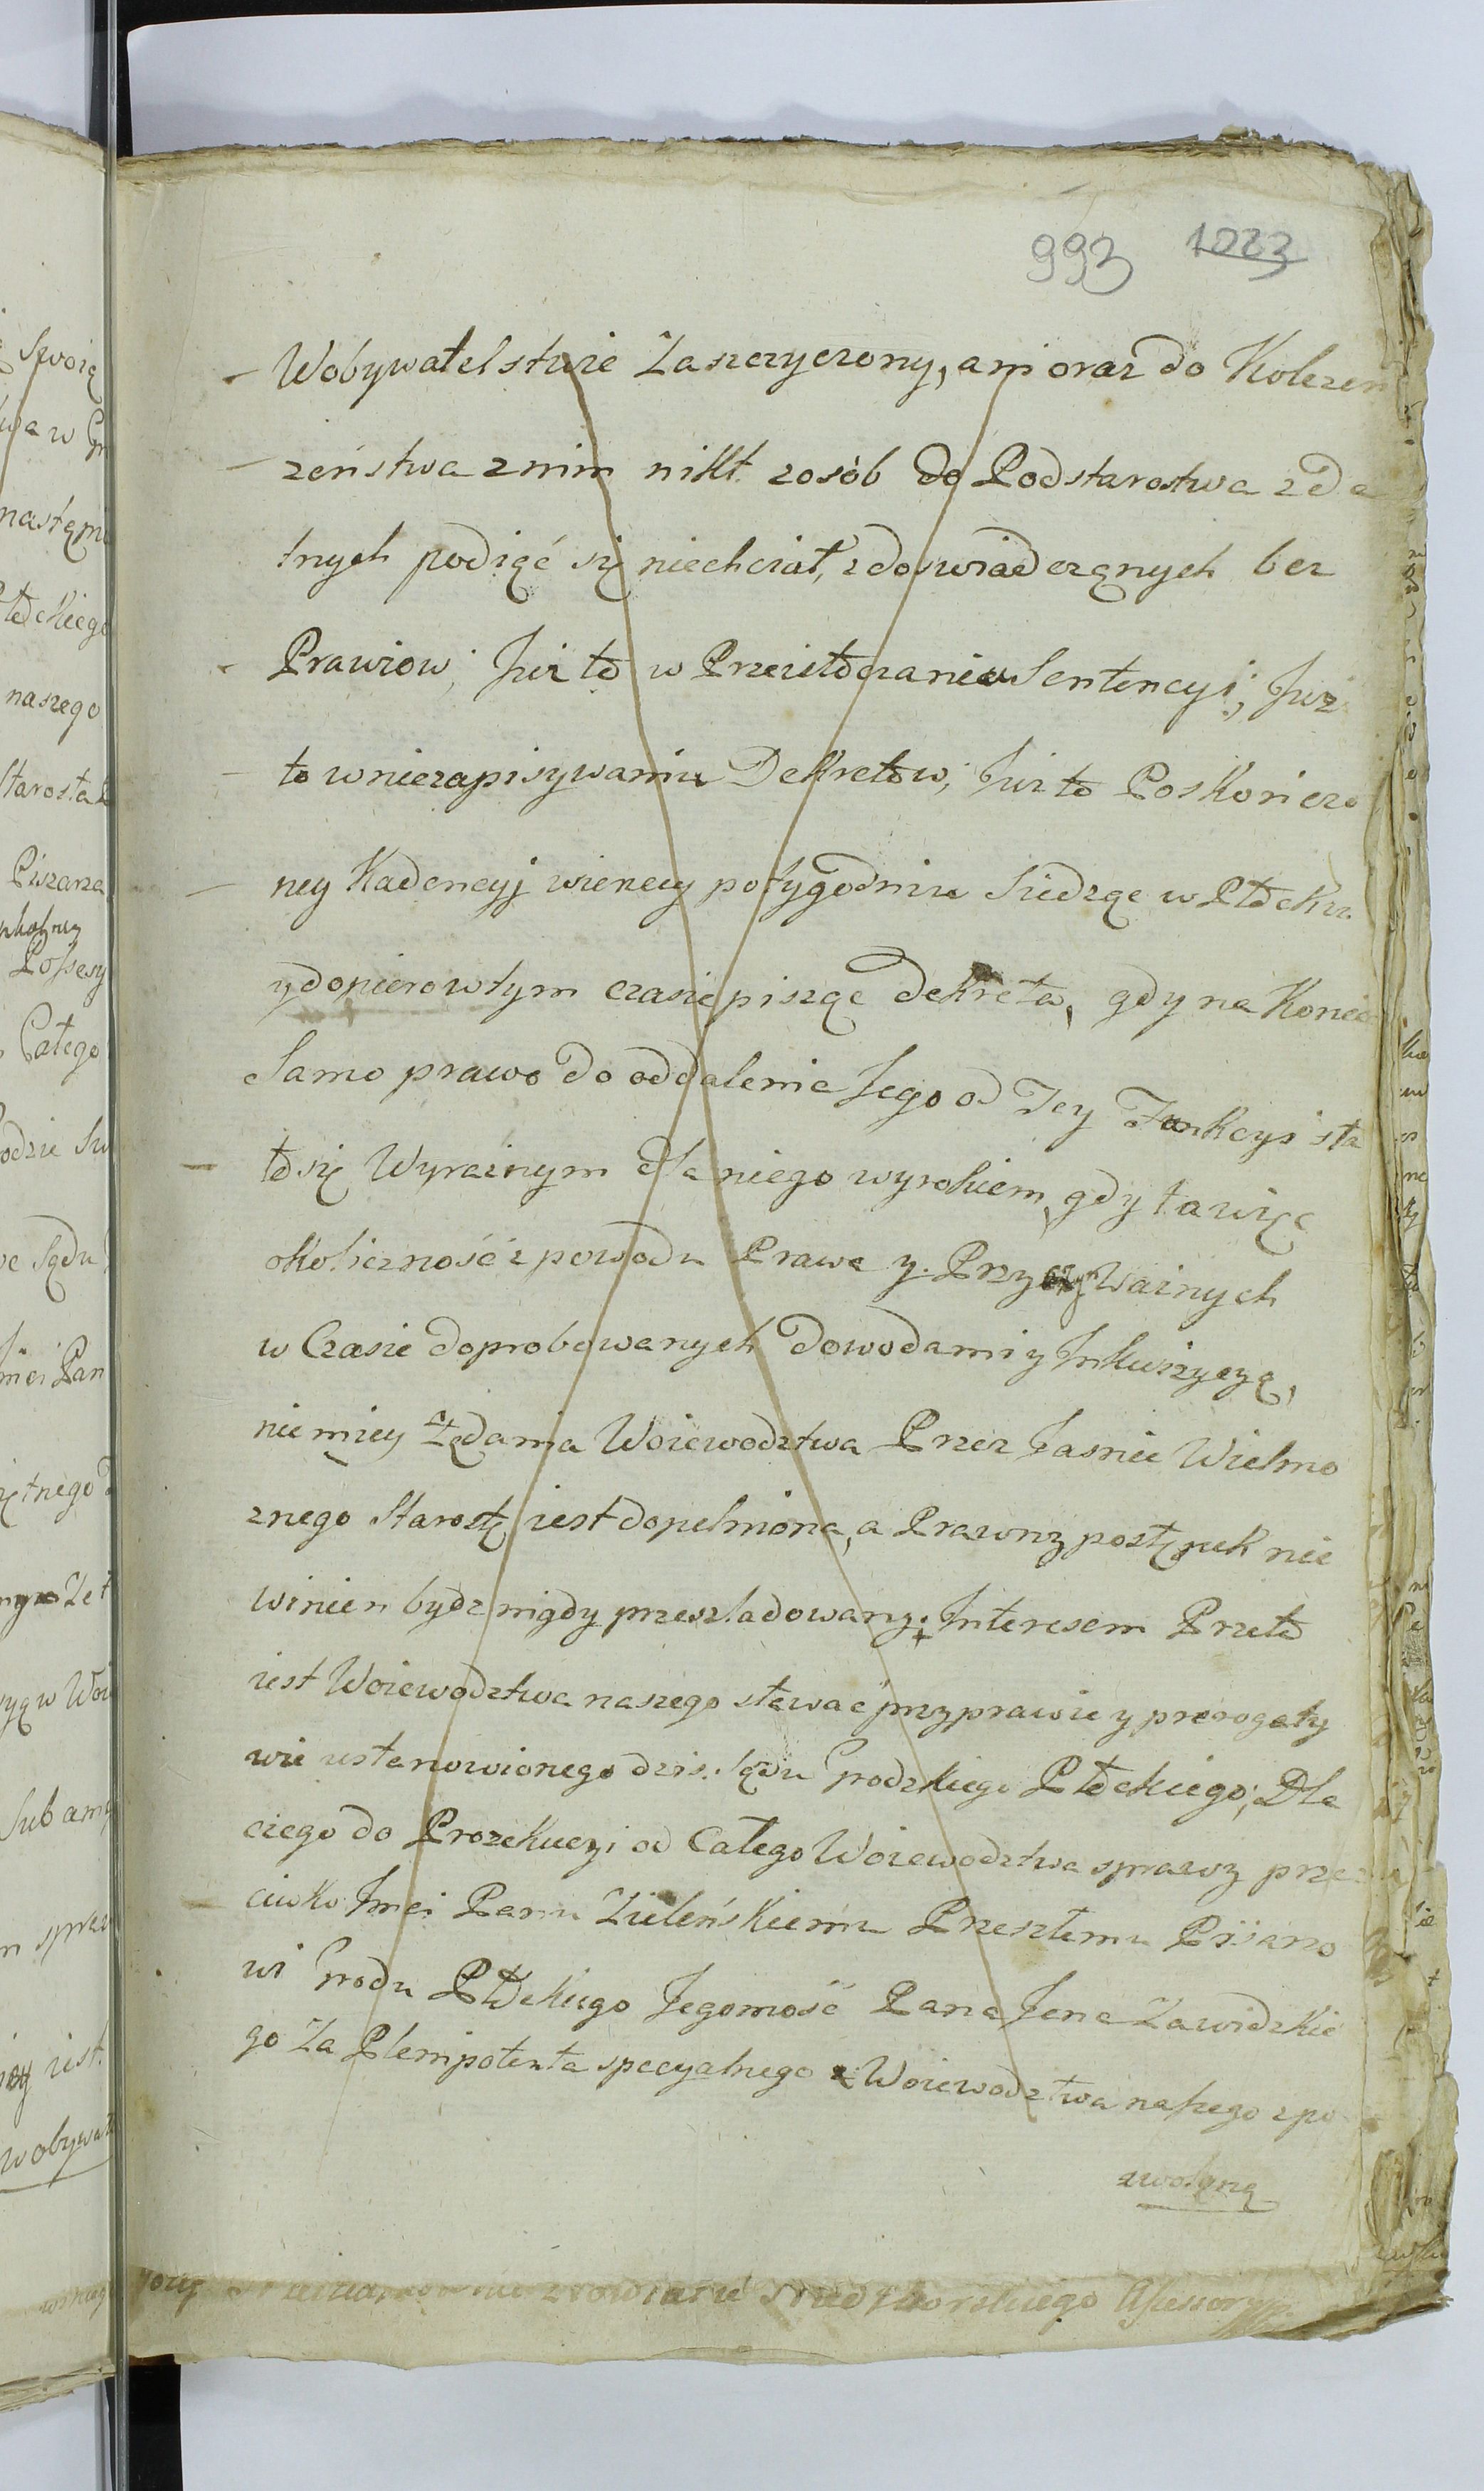 993 1023
Wobywatelstwie Zaszczyczony, ani oraz do Koleżeń
żeństwa znim nikt zosób do Podstarostwa zda
tnych podiąć się niechciał, zdoswiadczanych bez
Prawiow, Juz to w Przeistoczaniu Sentencyi; Juz
to wniezapisywaniu Dekretow; Juz to Poskończo
ney Kadencyj wiencey potygodniu Siedząc w Płocku
ydopierowtym czasie pisząc dekreta, gdy na Koniec
Samo prawo do oddalenia Jego od Tey Funkcyi sta
ło się Wyraznym dla niego wyrokiem, gdy ta więc
okoliczność z powodu Prawa y. Przyczyn Waznych
w Czasie doprobowanych dowodami y Inkwizycyą,
nie mniey Żądania Woiewodztwa Przez Jasnie Wielmo
znego Starostę iest dopełniona, a Prawny postępek nie
winien bydz nigdy przesladowany; Interesem Przeto
iest Woiewodztwa naszego stawać przyprawie y prerogaty
wie ustanowionego dzis. Sądu Grodzkiego Płockiego; Dla
czego do Prozekucyi od Całego Woiewodztwa sprawy prze
ciwko Jmci Panu Zieleńskiemu Przeszłemu Pisarzo
wi Grodu Płockiego Jegomość Pana Jana Zawidzkie
go Za Plenipotenta specyalnego z Woiewodztwa naszego zpo
zwoloną